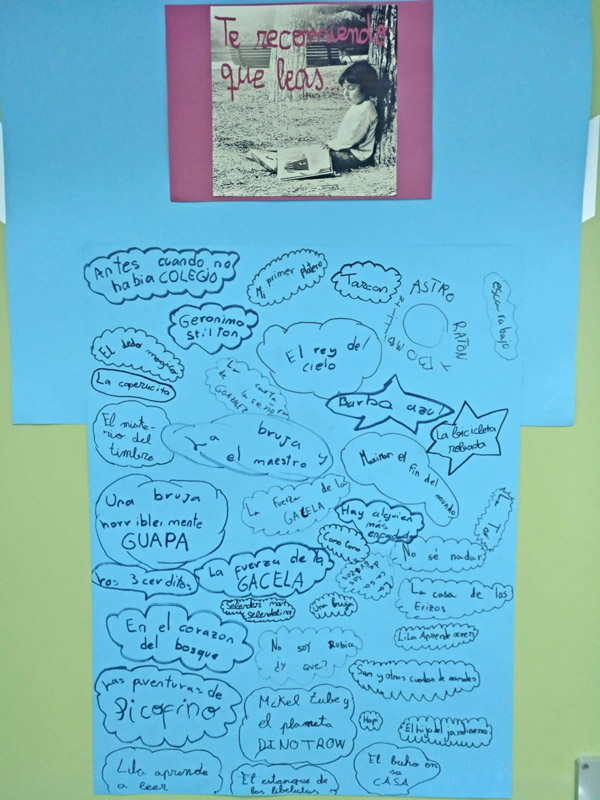 Te recomiendo
que leas
Antes cuando no
habia COLEGIO
Mi primer platero
Tarzan
ASTRO
RATON
Y
BOMBI
escarabajo
Geronimo
stilton
El rey del
cielo
El dedo magico
La caperucita
La carta
de
la señora
GONZALEZ
Barba azul
La bicicleta
robada
El miste-
rio del
timbre
La bruja y
el maestro
el fin del mundo
Una bruja
horriblemente
GUAPA
La fuerza de la
GACELA
Hay alguien
más
enfadado
La
Como Como
No sé nadar
Los 3 cerditos
La fuerza de la
GACELA
La casa de los
Erizos
Una bruja
En el corazon
del bosque
No soy Rubia
¿Y que?
Lila Aprende a leer
San y otros cuentos de animales
Las aventuras de
Picofino
Mikel Zube y
el planeta
DINOTROW
Hopi
El hijo del jardinero
Lila aprende
a leer
El estanque de
las libelulas
El buho en
su
CASA